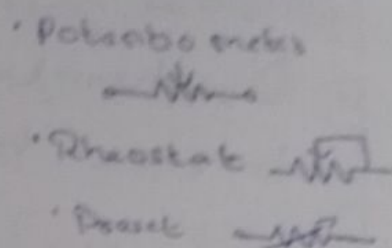 · Potentiometer
· Rheostat
· Preset